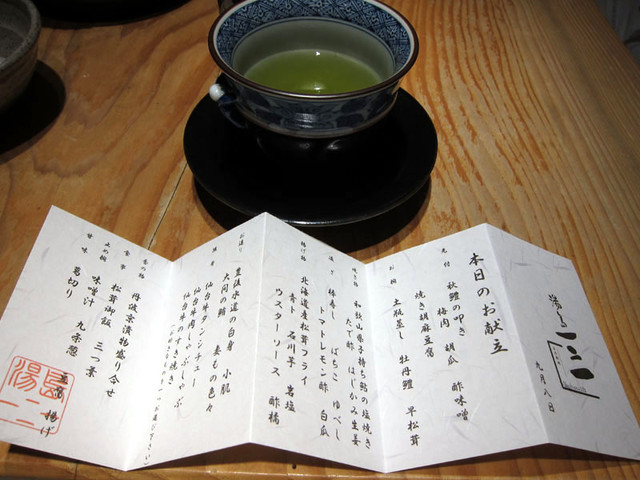 九月八日
本日のお献立
先付
秋鱧の叩き 酢味噌
梅肉 胡瓜
焼き胡麻豆腐
お椀
土瓶蒸し 牡丹鱧 早松茸
焼き物
和歌山県子持ち鮎の塩焼き
たで酢 はじかみ生姜
棒寿し ばちこ ゆべし
トマトレモン酢 白瓜
揚げ物
北海道産松茸フライ
青ト 石川芋 岩塩
ウスターソース 酢橘
お造り
豊後水道の白身 小肌
大間の鮪 妻もの色々
仙台牛タンシチュー
仙台牛肉しゃぶしゃぶ
仙台牛のすき焼き
香の物
丹波亭漬物盛り合せ
食事
松茸御飯 三つ葉
止め椀
味噌汁 九条葱
豆腐 揚げ
甘味
葛切り
湯島
一二三